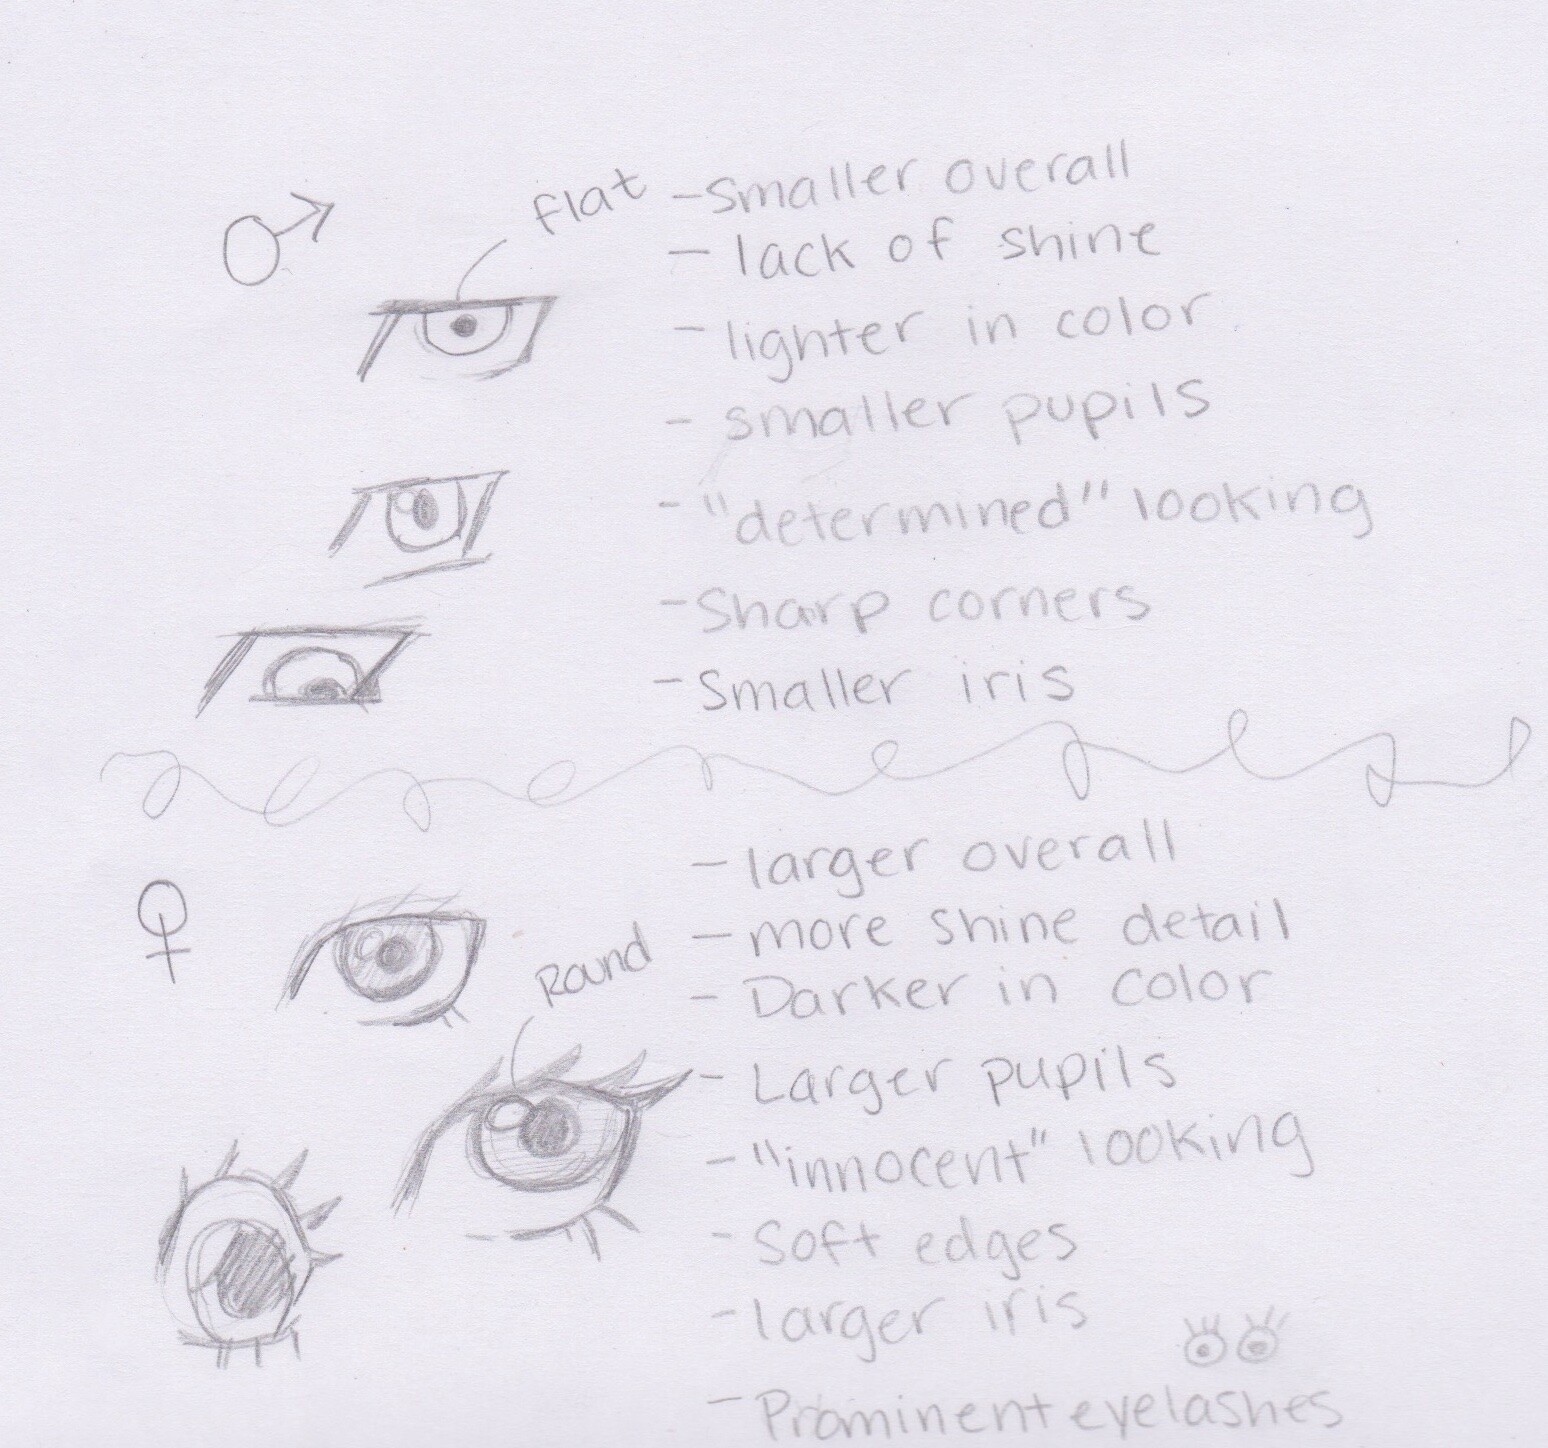 ♂
flat
- Smaller overall
- lack of shine
- lighter in color
- smaller pupils
- "determined" looking
- Sharp corners
- Smaller iris
♀
Round
- larger overall
- more shine detail
- Darker in color
- Larger pupils
- "innocent" looking
- Soft edges
- larger iris
- Prominent eyelashes